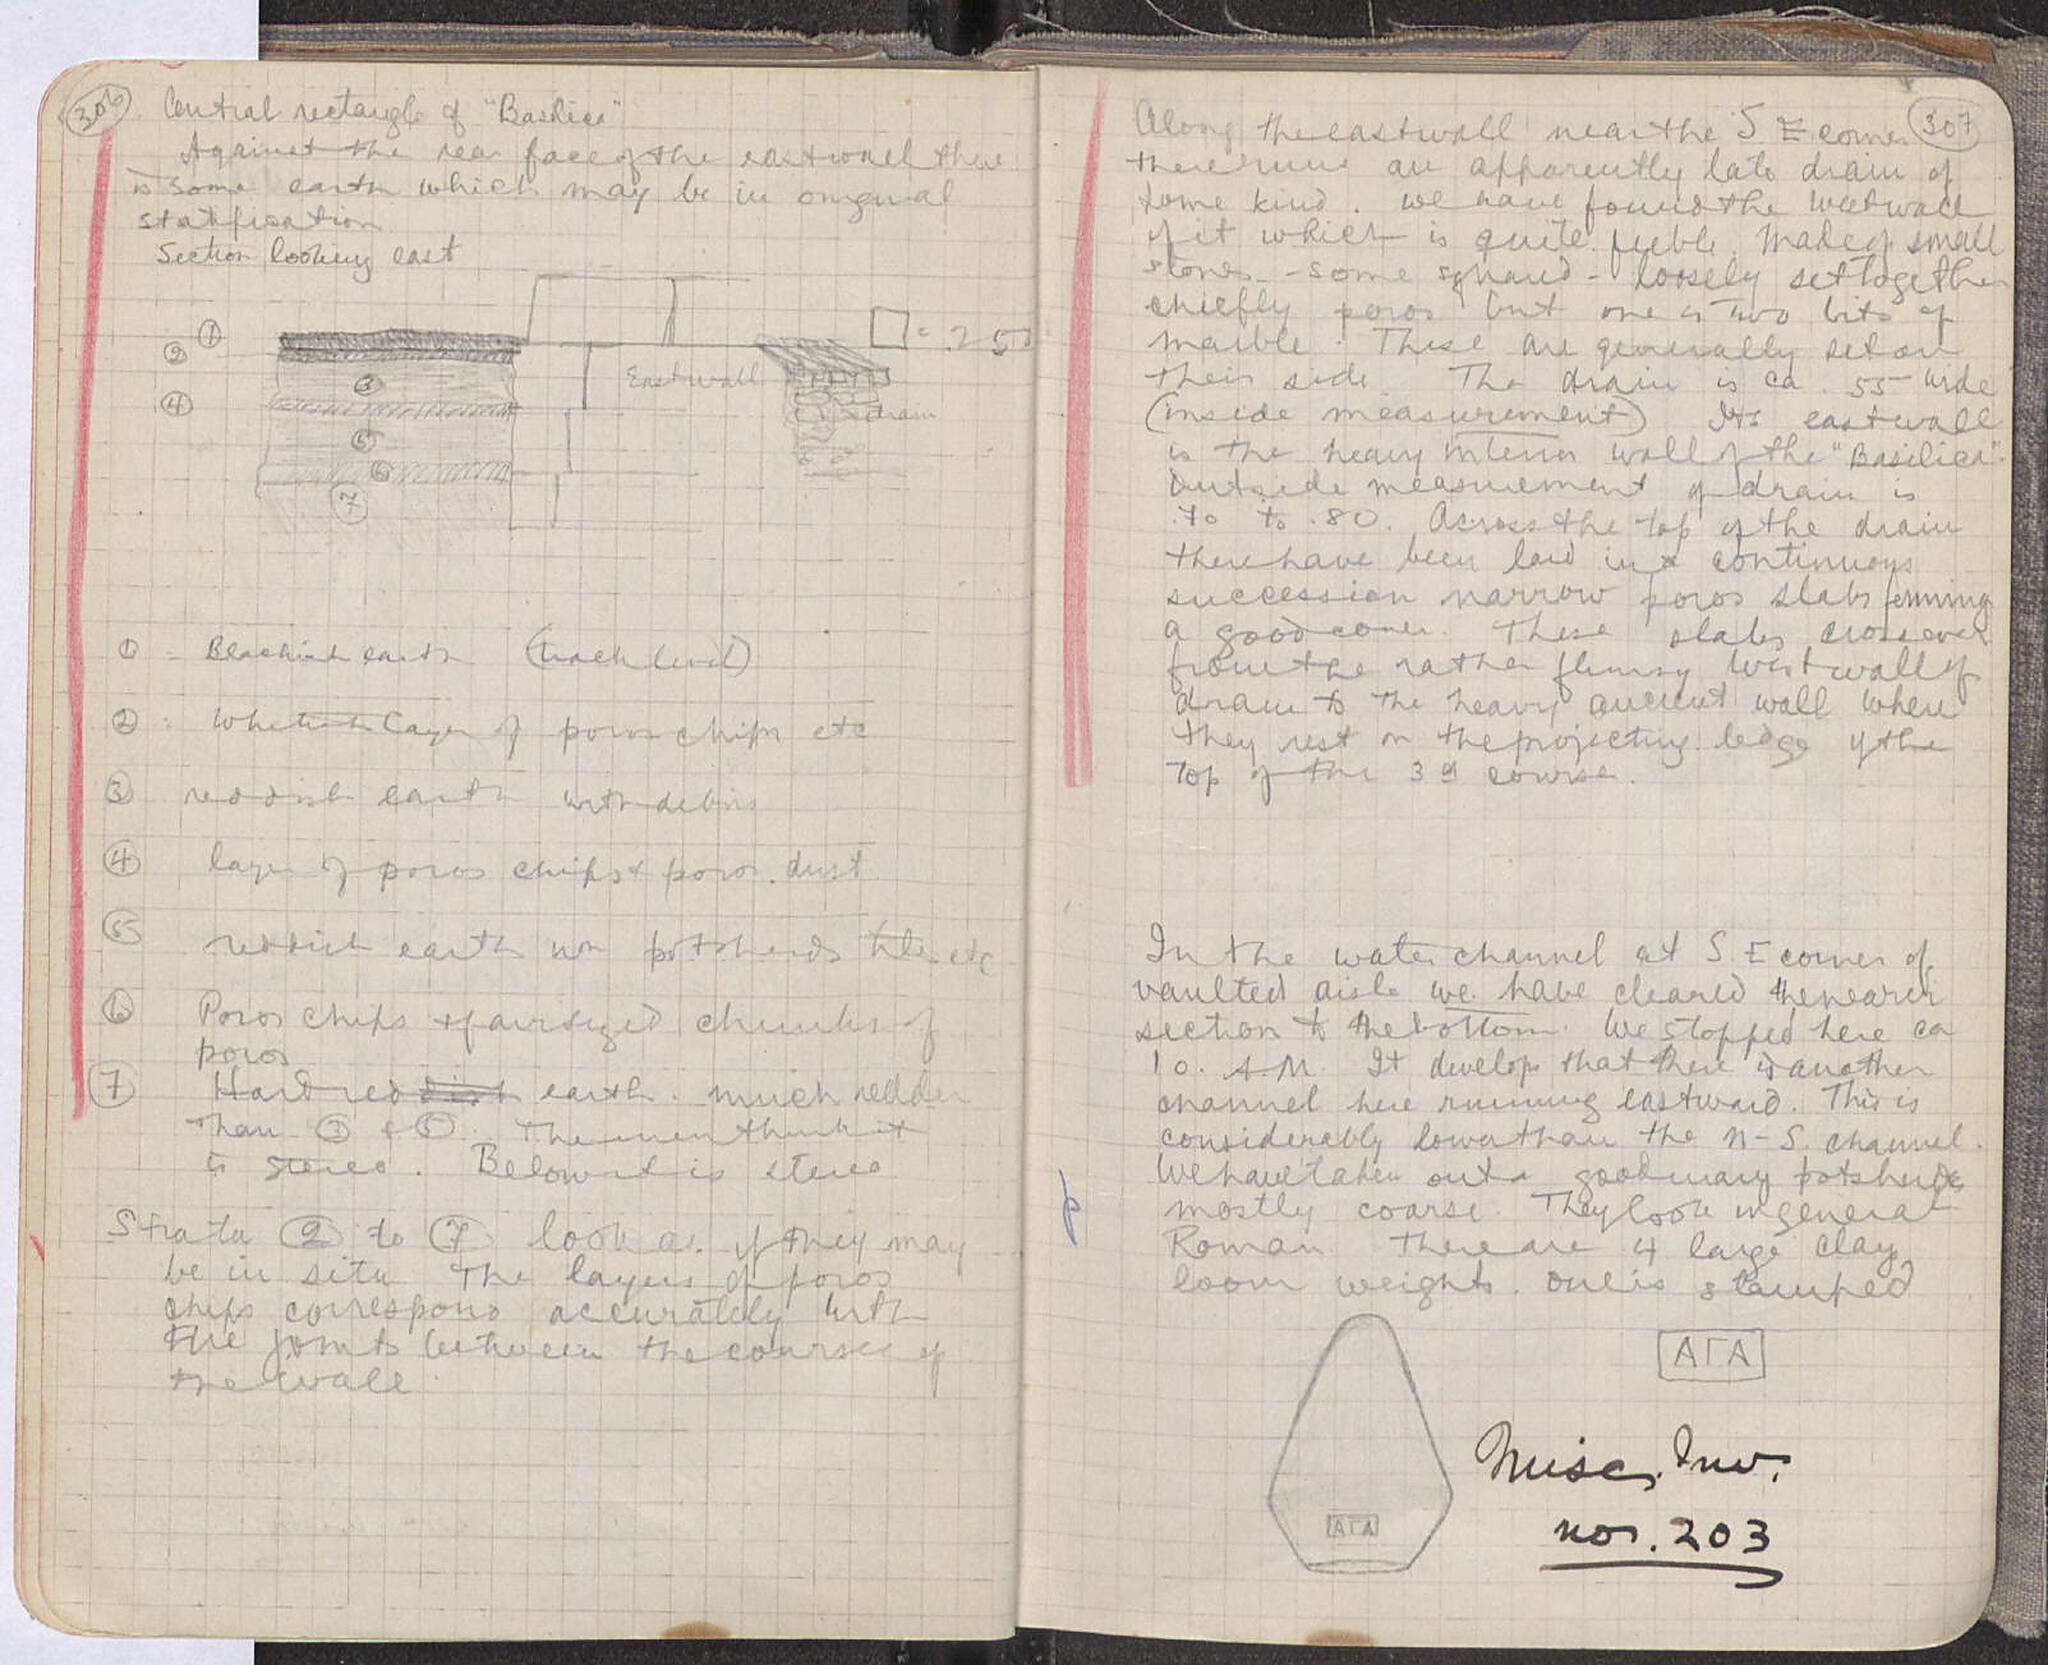 306
Central rectangle of "Basilica"
Against the rear face of the east wall there
is some earth which may be in original
statification
Section looking east
① ② ④ ③ ⑤ ⑥ ⑦
East wall
drain
□ = .25
① = Blackish earth (track level)
② = Whitish layer of poros chips etc
③ reddish earth with debris
④ layer of poros chips & poros dust
⑤ reddish earth potsherds tiles etc
⑥ Poros chips & fair sized chunks of
poros
⑦ Hard red earth. much redder
than ③ & ⑤. The men think it
is stereo. Below it is stereo
Strata ② to ⑦ look as if they may
be in situ The layers of poros
chips correspond accurately with
the joints between the courses of
the wall.
307
Along the east wall near the S E corner
there runs an apparently late drain of
some kind. We have found the west wall
of it which is quite feeble. Made of small
stones - some squared - loosely set together
chiefly poros but one or two bits of
marble. These are generally set on
their side. The drain is ca .55 wide
(inside measurement) Its east wall
is the heavy interior wall of the "Basilica".
Outside measurement of drain is
.70 to .80. Across the top of the drain
there have been laid in a continuous
succession narrow poros slabs forming
a good cover. These slabs cross over
from the rather flimsy West wall of
drain to the heavy ancient wall where
they rest on the projecting ledge of the
top of the 3rd course.
In the water channel at S.E corner of
vaulted aisle we have cleared the nearer
section to the bottom. We stopped here ca
10. A.M. It develops that there is another
channel here running eastward. This is
considerably lower than the N-S. channel.
We have taken out a good many potsherds
mostly coarse. They look in general
Roman. There are 4 large clay
loom weights. One is stamped
ΑΓΑ
ΑΓΑ
Misc. Inv.
nos. 203